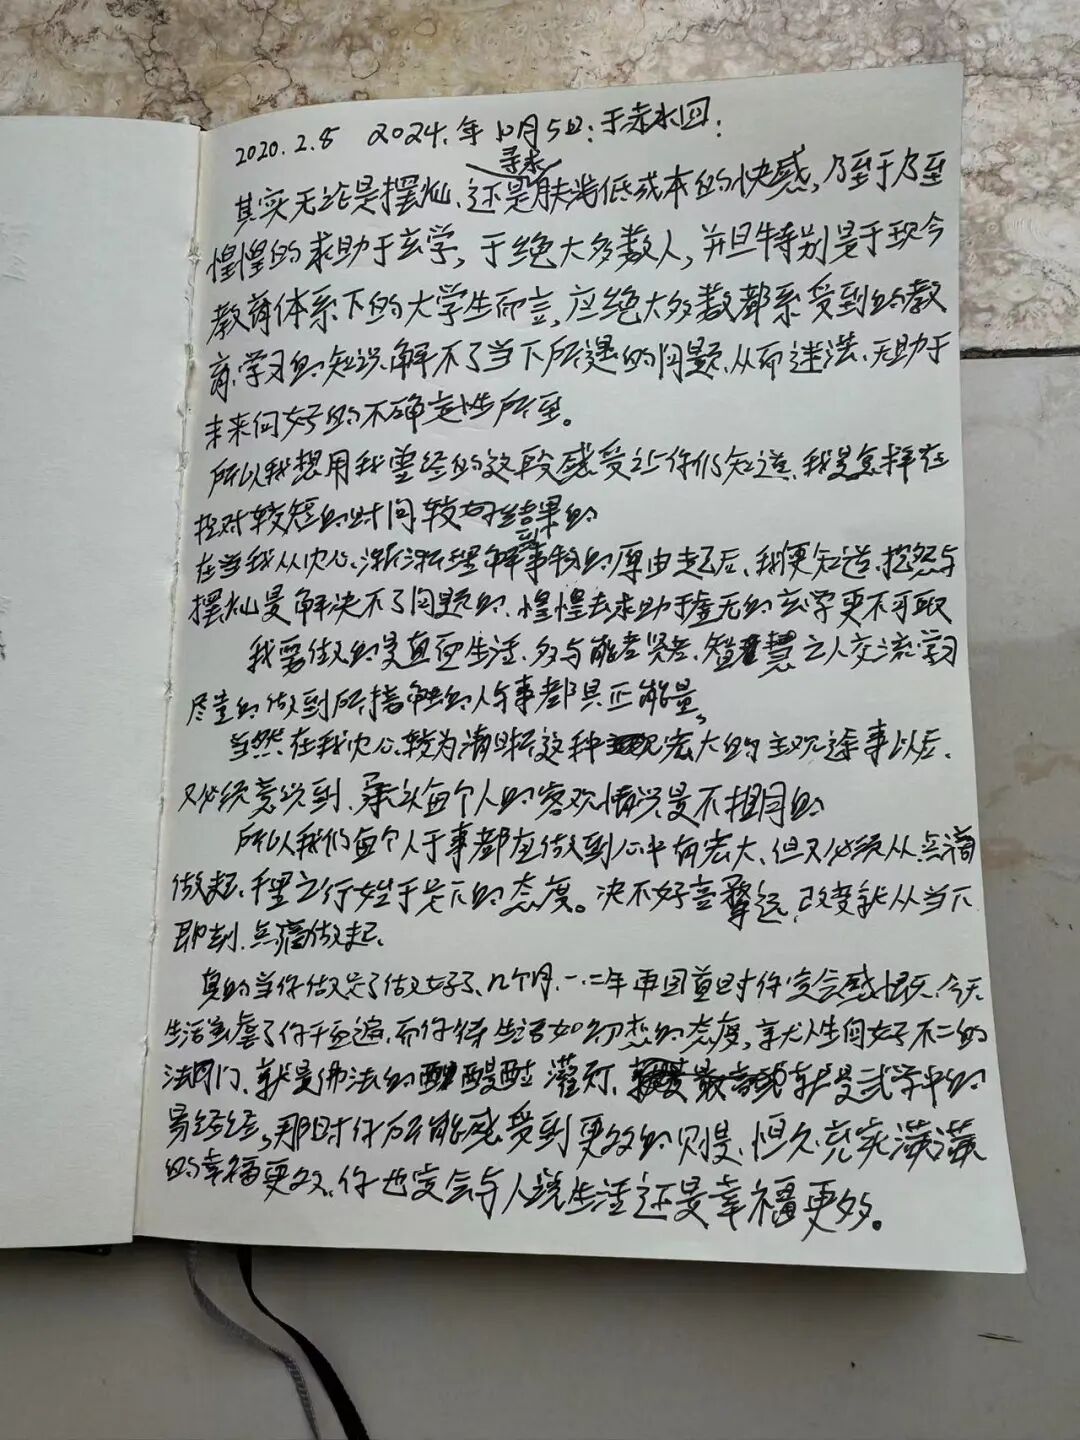 2020.2.8 2024.年10月5日:于赤水回:
其实无论是摆烂、还是寻求肤浅低成本的快感,乃至于乃至
惶惶的求助于玄学,于绝大多数人,并且特别是于现今
教育体系下的大学生而言,应绝大多数都系受到的教
育、学习的知识、解不了当下所遇的问题、从而迷茫、无助于
未来向好的不确定性所至。
所以我想用我曾经的这段感受让你们知道、我是怎样在
相对较短的时间较好结果的
在当我从内心、渐渐理解事物的原由起后、我便知道、摆烂是解决不了问题的、惶惶去求助于虚无的玄学更不可取
我要做的是直面生活、多与能者贤者、智慧之人交流学习
尽量的做到所接触的人与事都具正能量。
当然在我内心、较为清晰这种宏大的主观逐事以后、
又必须意识到、承认每个人的客观情况是不相同的
所以我们每个人于事都应做到心中有宏大、但又必须从点滴
做起、千里之行始于足下的态度。决不好高骛远、改变就从当下
即刻、点滴做起、
真的当你做足了做好了、几个月、一、二年再回首时你定会感恨天、今天
生活虐了你千百遍、而你待生活如初恋的态度,亲尤人生向好不二的
法门、就是佛法的醍醐灌顶、就是武学中的
易经经,那时你方能感受到更多的贝曼、恒久充实满满
的幸福更多、你也定会与人说生活还是幸福更多。